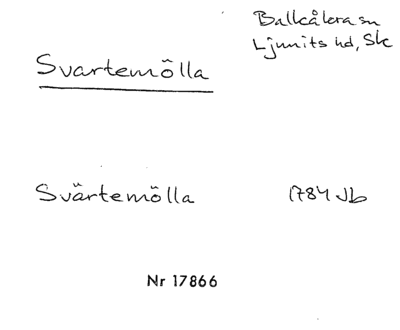 Balkåkra sn
Ljunits hd, Sk
Svartemölla
Svärtemölla 1784 Jb
Nr 17866